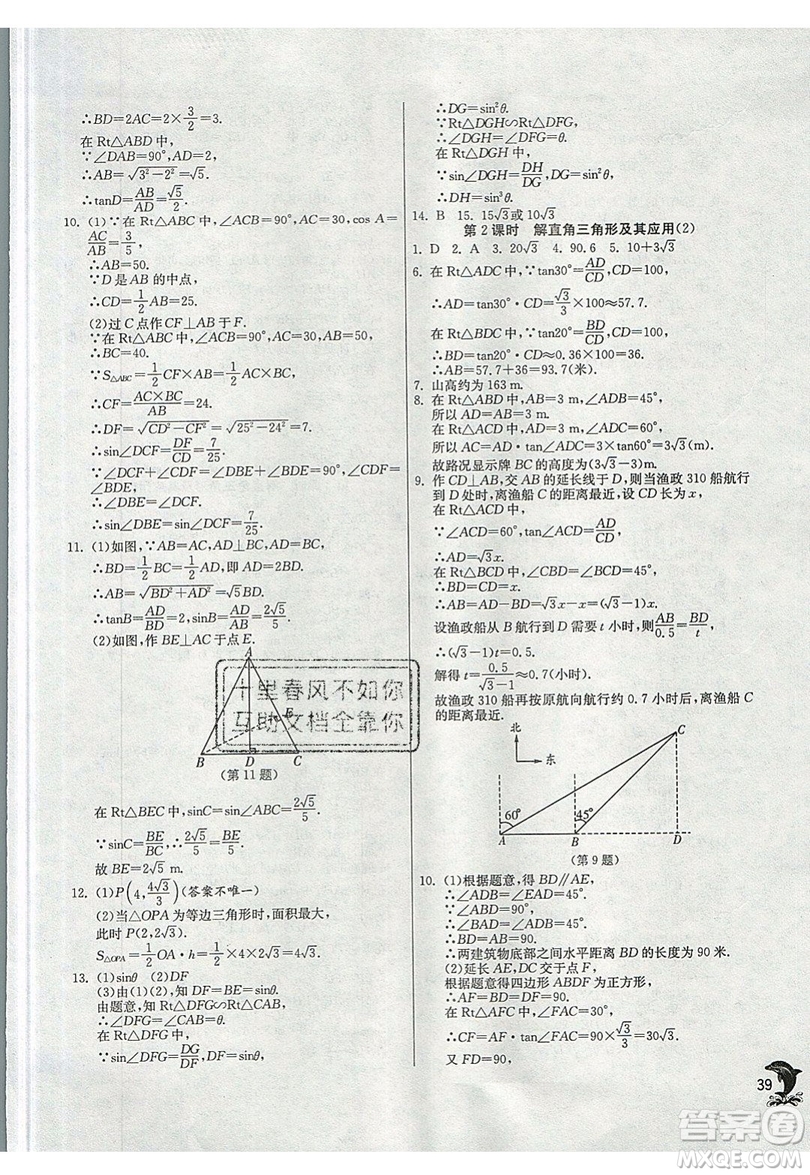 ∴BD=2AC=2×3/2=3.
在 Rt△ABD 中,
∵∠DAB=90°,AD=2,
∴AB=√(3²-2²)=√5.
∴tanD=AB/AD=√5/2.
10. (1)∵在 Rt△ABC 中,∠ACB=90°,AC=30,cos A=
AC/AB=3/5,
∴AB=50.
∵D 是 AB 的中点,
∴CD=1/2AB=25.
(2)过 C 点作 CF⊥AB 于 F.
∵在 Rt△ABC 中,∠ACB=90°,AC=30,AB=50,
∴BC=40.
∵S△ABC=1/2CF×AB=1/2AC×BC,
∴CF=AC×BC/AB=24.
∴DF=√(CD²-CF²)=√(25²-24²)=7.
∴sin∠DCF=DF/CD=7/25.
∵∠DCF+∠CDF=∠DBE+∠CDF=90°,∴∠DCF=
∠DBE=∠DCF.
∴sin∠DBE=sin∠DCF=7/25.
11. (1)如图,∵AB=AC,AD⊥BC,AD=BC,
∴BD=1/2BC=1/2AD,即 AD=2BD.
∴AB=√(BD²+AD²)=√5BD.
∴tanB=AD/BD=2,sinB=AD/AB=2√5/5.
(2)如图,作 BE⊥AC 于点 E.
A
十里春风不如你
互助文档全靠你
E
B D C
(第 11 题)
在 Rt△BEC 中,sinC=sin∠ABC=2√5/5.
∵sinC=BE/BC,∴2√5/5=BE/5.
故 BE=2√5 m.
12. (1)P(4,4√3/3)(答案不唯一)
(2)当△OPA 为等边三角形时,面积最大.
此时 P(2,2√3).
S△OPA=1/2OA·h=1/2×4×2√3=4√3.
13. (1)sinθ (2)DF
(3)由(1)(2),知 DF=BE=sinθ.
由题意,知 Rt△DFG∽Rt△CAB,
∴∠DFG=∠CAB=θ.
在 Rt△DFG 中,
∵sin∠DFG=DG/DF,
∴DG=sin²θ.
∵Rt△DGH∽Rt△DFG,
∴∠DGH=∠DFG=θ.
在 Rt△DGH 中,
∵sin∠DGH=DH/DG,
∴DH=sin³θ.
14. B 15. 15√3或10√3
第 2 课时 解直角三角形及其应用(2)
1. D 2. A 3. 20√3 4. 90.6 5. 10+3√3
6. 在 Rt△ADC 中,∵tan30°=AD/CD,CD=100,
∴AD=tan30°·CD=√3/3×100≈57.7.
在 Rt△BDC 中,∵tan20°=BD/CD,CD=100,
∴BD=tan20°·CD≈0.36×100=36.
∴AB≈57.7+36=93.7(米).
7. 山高约为 163 m.
8. 在 Rt△ABD 中,AB=3 m,∠ADB=45°,
所以 AD=AB=3 m.
在 Rt△ADC 中,AD=3 m,∠ADC=60°,
所以 AC=AD·tan60°=3×√3=3√3(m).
故路况显示牌 BC 的高度为(3√3-3)m.
9. 作 CD⊥AB,交 AB 的延长线于 D,则当渔政 310 船航行
到 D 处时,离渔船 C 的距离最近,设 CD 长为 x,
在 Rt△ACD 中,
∵∠ACD=60°,tan∠ACD=AD/CD,
∴AD=√3x.
在 Rt△BCD 中,
∴BD=CD=x.
∴AB=AD-BD=√3x-x=(√3-1)x.
设渔政船从 B 航行到 D 需要 t 小时,则AB/0.5=BD/t,
∴(√3-1)t=0.5.
解得 t=0.5/(√3-1)≈0.7(小时).
故渔政 310 船再按原航向航行约 0.7 小时后,离渔船 C
的距离最近.
北
东
C
60° 45°
A B D
(第 9 题)
10. (1)根据题意,得 BD∥AE,
∴∠ADB=∠EAD=45°.
∵∠ABD=90°,
∴∠BAD=∠ADB=45°.
∴BD=AB=90.
∴两建筑物底部之间水平距离 BD 的长度为 90 米.
(2)延长 AE、DC 交于点 F,
根据题意得四边形 ABDF 为正方形,
∴AF=BD=DF=90.
在 Rt△AFC 中,∠FAC=30°,
∴CF=AF·tan∠FAC=90×√3/3=30√3.
又 FD=90,
39
答案卷
MXQE.COM